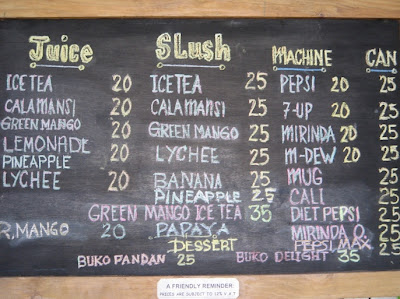 Juice SLush MACHINE CAN
ICE TEA 20 ICE TEA 25 PEPSI 20 25
CALAMANSI 20 CALAMANSI 25 7-UP 20 25
GREEN MANGO 20 GREEN MANGO 25 MIRINDA 20 25
LEMONADE 20 LYCHEE 25 M-DEW 20 25
PINEAPPLE
LYCHEE 20 BANANA 25 MUG 25
PINEAPPLE 25 CALI 25
GREEN MANGO ICE TEA 35 DIET PEPSI 25
R. MANGO 20 PAPAYA MIRINDA O. 25
DESSERT PEPSI MAX 25
BUKO PANDAN 25 BUKO DELIGHT 35
A FRIENDLY REMINDER
PRICES ARE SUBJECT TO 12% V.A.T